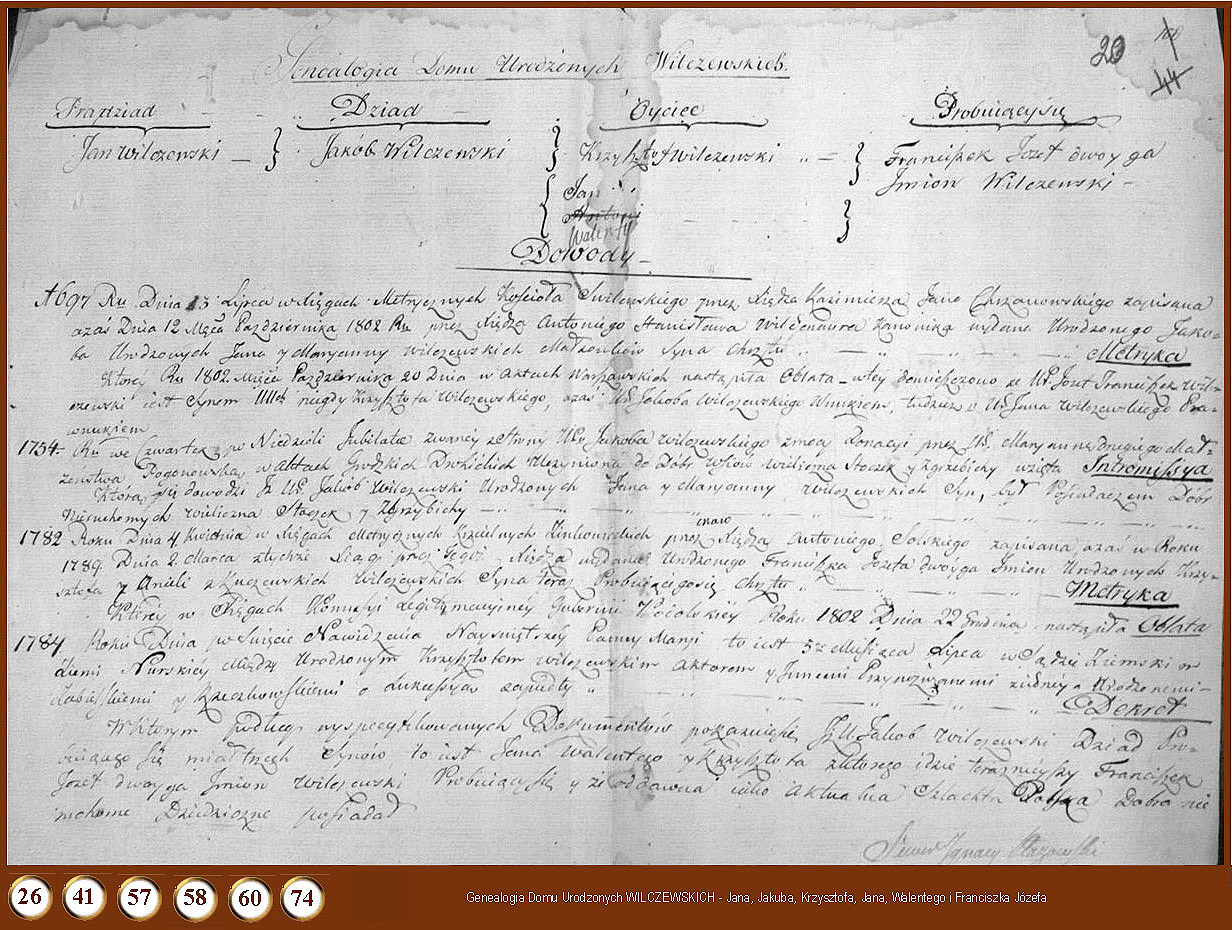 Genealogia Domu Urodzonych Wilczewskich.
20
44
Pradziad - - Dziad - Oyciec Probuiący się
Jan Wilczewski - } Jakób Wilczewski } Krzysztof Wilczewski } Franciszek Jozef dwoyga
Imion Wilczewski -
{ Jan
Antoni }
Walenty
Dowody -
1697 Ru Dnia 13 Lipca w Xięgach Metrycznych Kościoła przez Xiędza Kazimierza Jana Chrzanowskiego zapisana
azaś Dnia 12 Mąca Pazdziernika 1802 Ru przez Xiędza Antoniego Stanisława Kanonika wydana Urodzonego Jako-
ba Urodzonych Jana y Maryanny Wilczewskich Małżonków Syna Chrztu - - - Metryka
Ktorey Ru 1802 Mięca Pazdziernika 20 Dnia w Aktach Warszawskich nastąpiła Oblata - wtey domieszczono ze Ur. Jozef Franciszek Wil-
czewski iest Synem niegdy Krzysztofa Wilczewskiego, azaś Ur. Jakoba Wilczewskiego Wnukiem, tudzież Ur. Jana Wilczewskiego Pra-
wnukiem
1754 - Ru we Czwartek po Niedzieli Jubilate zwaney ze strony Ur. Jakoba Wilczewskiego zmocy Donacyi przez Ur. Maryannę drugiego Mał-
żeństwa Pogonowską w Aktach Grodzkich Drohickich Uczyniona do Dóbr Wsiów Wiliczna Stoczek y Zgrzebichy wzięta Intromissya
Którą się dowodzi Iz Ur. Jakób Wilczewski Urodzonych Jana y Maryanny Wilczewskich Syn, był Posiadaczem Dobr
Nieruchomych Wiliczna Stoczek y Zgrzybichy - - -
1782 Roku Dnia 4 Kwietnia w Xięgach Metrycznych Kościelnych przez Xiędza Antoniego Solskiego zapisana, azaś w Roku
1789. Dnia 2 Marca ztychże Xiąg przez tegoż Xiędza wydana Urodzonego Franciszka Jozefa dwoyga Imion Urodzonych Krzy-
sztofa y Anieli z Wilczewskich Syna teraz Probuiącego się Chrztu - - - Metryka
Którey w Xięgach Kommisyi Legitymacyiney Gubernii Roku 1802 Dnia 22 Grudnia nastąpiła Oblata
1784 Roku Dnia po Swięcie Nawiedzenia Nayświętszey Panny Maryi to iest 5go Miesiąca Lipca w Sądzie Ziemskim
Ziemi Nurskiey Między Urodzonym Krzysztofem Wilczewskim Aktorem y Innemi Przypozwanemi Urodzonemi -
y o zapadły - - - Dekret
W którym podług wyspecyfikowanych Dokumentow pokazuie się Iz U Jakob Wilczewski Dziad Pro-
buiącego się miał trzech Synów to iest Jana Walentego y Krzysztofa zktorego idzie teraznieyszy Franciszek
Jozef dwoyga Imion Wilczewski Probuiący się y ze oddawna iako Aktualna Szlachta Polska Dobra nie
ruchome Dziedziczne posiadał
Ignacy
26 41 57 58 60 74
Genealogia Domu Urodzonych WILCZEWSKICH - Jana, Jakuba, Krzysztofa, Jana, Walentego i Franciszka Józefa